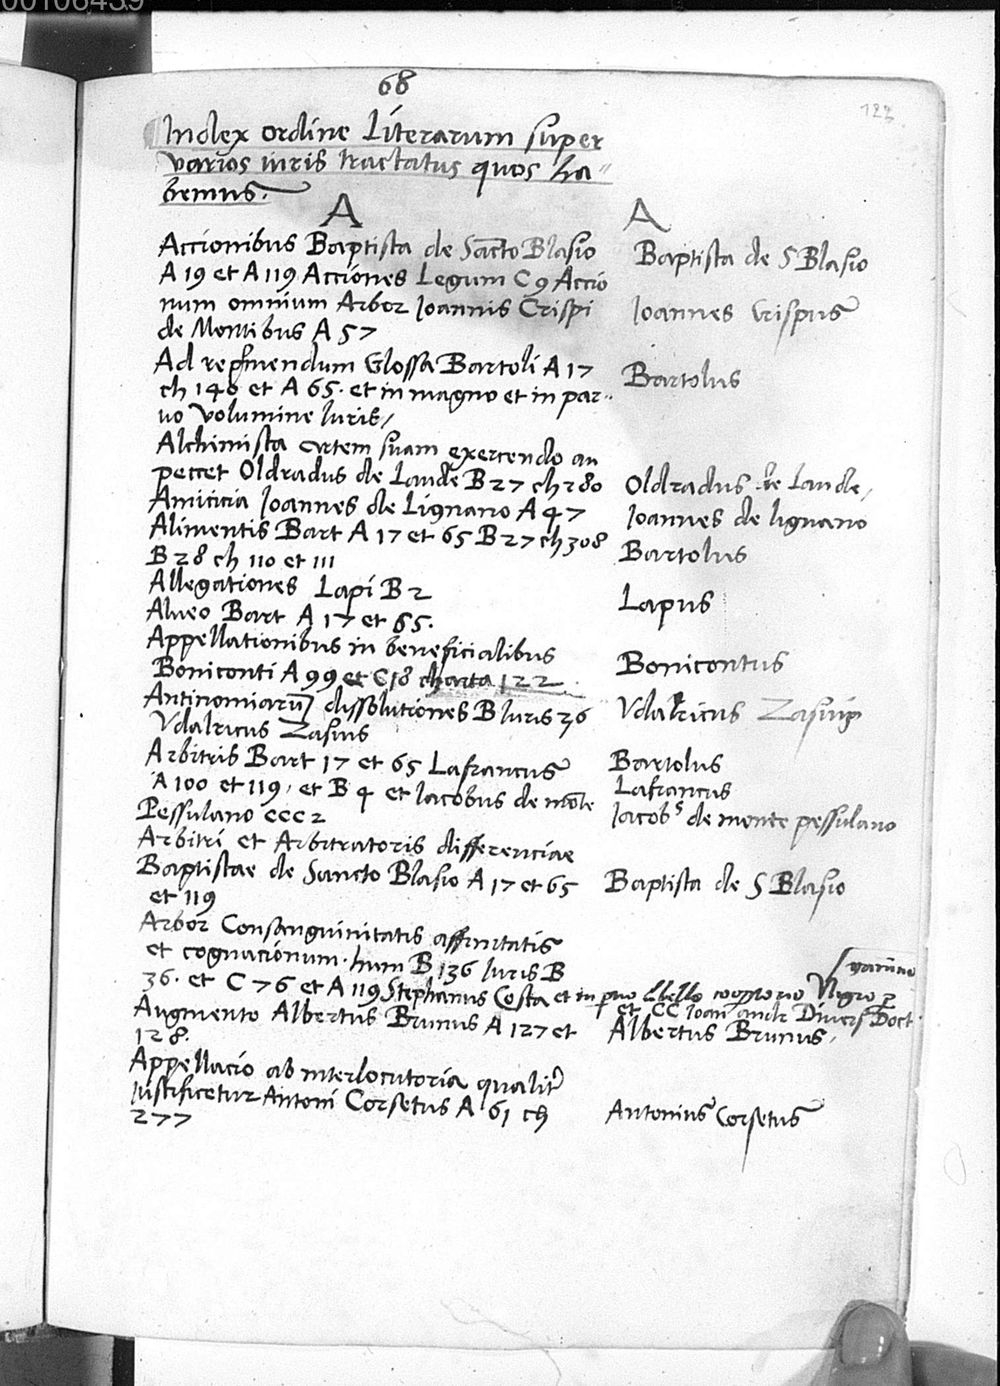 00106459
68
123
Index ordine Literarum super
varios iuris tractatus quos ha"
bemus.
A
A
Accionibus Baptista de Sancto Blasio
Baptista de S Blasio
A 19 et A 119 Acciones Legum C 9 Accio
num omnium Arbor Joannis Crispi
Joannes Crispus
de Montibus A 57
Ad reprimendum Glossa Bartoli A 17
Bartolus
ch 148 et A 65. et in magno et in par..
uo Volumine Iuris/
Alchimista artem suam exercendo an
peccet Oldradus de Laude B 27 ch 280
Oldradus de Laude,
Amicicia Joannes de Lignano A 47
Joannes de lignano
Alimentis Bart A 17 et 65 B 27 ch 308
Bartolus
B 28 ch 110 et 111
Allegationes Lapi B 2
Lapus
Alueo Bart A 17 et 65.
Appellationibus in beneficialibus
Boniconti A 99 et C 18 charta 122
Bonicontus
Antinomiarum dissolutiones B Iuris 36
Vdalricus Zasius
Vdalricus Zasius
Arbitris Bart 17 et 65 Lafrancus
Bartolus
A 100 et 119, et B 4 et Iacobus de monte
Lafrancus
Pessulano CCC 2
Iacobs de monte pessulano
Arbitri et Arbitratoris differenciae
Baptistae de Sancto Blasio A 17 et 65
Baptista de S Blasio
et 119
Arbor Consanguinitatis affinitatis
et cognacionum. B 136 Iuris B
36. et C 76 et A 119 Stephanus Costa et in libello coopertorio Nigro
et CC Ioan andr Divers Doct.
Augmento Albertus Brunus A 127 et
Albertus Brunus.
128.
Appellacio ab interlocutoria qualiter
iustificetur Antoni Corsetus A 61 ch
Antonius Corsetus
277